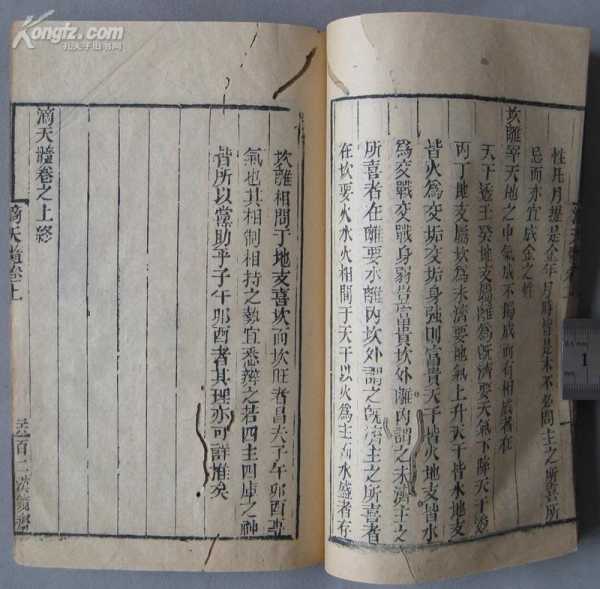 Kongfz.com
孔夫子旧书网
性月
忌而亦宜成金之性
坎離宰天地之中氣成不獨成而有相成者在
天干透壬癸地支屬離為既濟要天氣下降天干透
丙丁地支屬坎為未濟要地氣上升天干皆水地支
皆火為交垢交垢身強則富貴天干皆火地支皆水
為交戰交戰身弱豈富貴坎外離內謂之未濟主之
所喜者在離要水離內坎外謂之既濟主之所喜者
在坎要火水火相間于天干以火為主而水盛者存
坎離相間于地支喜坎而坎旺者昌夫子午卯酉專
氣也其相制相持之勢宜悉辨之若四主四庫之神
皆所以黨助乎子午卯酉者其理亦可詳推矣
滴天髓卷之上終
滴天髓卷上
百二漢鏡齋
1